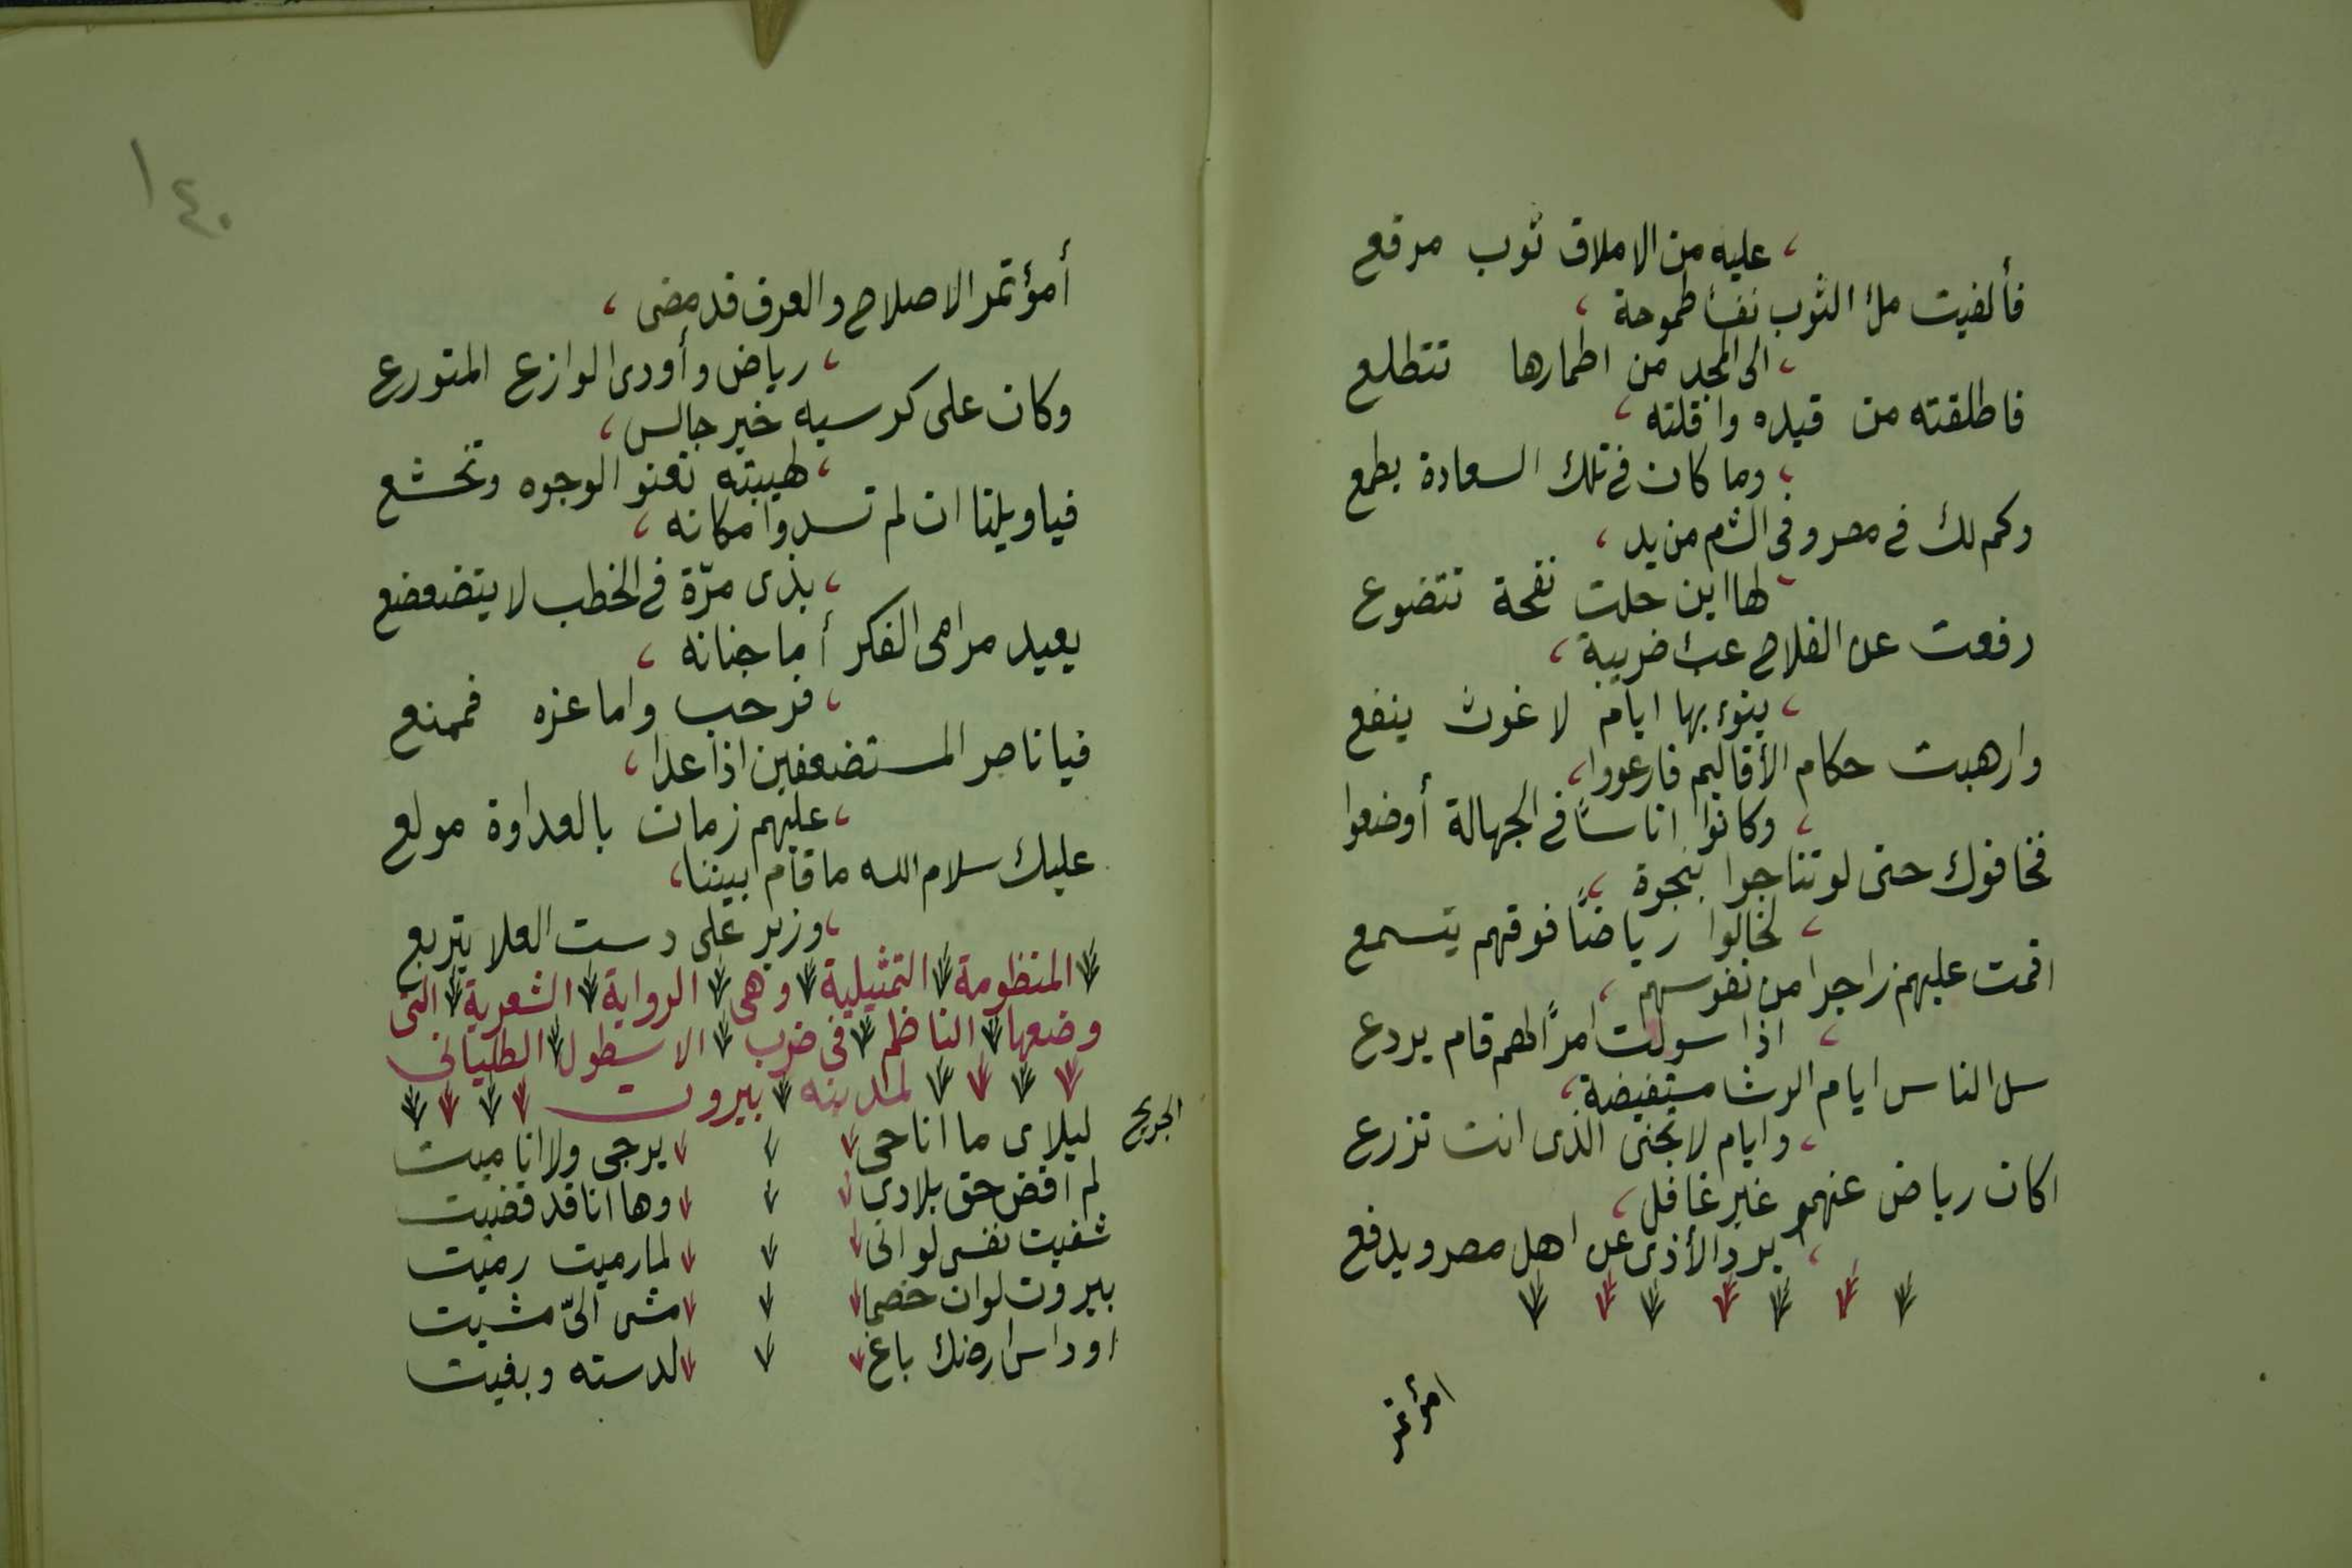 عليه من الاملاق ثوب مرقع
فألفيت ملء الثوب نفساً طموحة
الى المجد من اطمارها تتطلع
فاطلقته من قيده واقلته
وما كان في تلك السعادة يطمع
وكم لك في مصر وفي الشام من يد
لها اين حلت نفحة تتضوع
رفعت عن الفلاح عبء ضريبة
ينوء بها ايام لا غوث ينفع
وارهبت حكام الأقاليم فارعووا
وكانوا اناساً في الجهالة أوضعوا
فخافوك حتى لو تناجوا بنجوة
لخالوا رياضاً فوقهم يتسمع
اقمت عليهم زاجرا من نفوسهم
اذا سولت امراً لهم قام يردع
سل الناس ايام الرشا مستفيضة
وايام لا يجنى الذى انت تزرع
اكان رياض عنهمو غير غافل
يرد الأذى عن اهل مصر ويدفع
امؤتمر
١٤٠
أمؤتمر الاصلاح والعرف قد مضى
رياض وأودى الوازع المتورع
وكان على كرسيه خير جالس
لهيبته تعنو الوجوه وتخشع
فيا ويلنا ان لم تسدوا مكانه
بذى مرّة في الخطب لا يتضعضع
يعيد مرامى الفكر أما جنانه
فرحب واما عزه فممنع
فيا ناصر المستضعفين اذا عدا
عليهم زمان بالعداوة مولع
عليك سلام الله ما قام بيننا
وزير على دست العلا يتربع
المنظومة التمثيلية وهى الرواية الشعرية التى
وضعها الناظم فى ضرب الاسطول الطليانى
لمدينه بيروت
الجريح
ليلاى ما انا حى يرجى ولا انا ميت
لم اقض حق بلادى وها انا قد قضيت
شفيت نفسى لو انى لما رميت رميت
بيروت لو ان خصما مشى الىّ مشيت
او داس ارضك باغ لدسته وبغيت